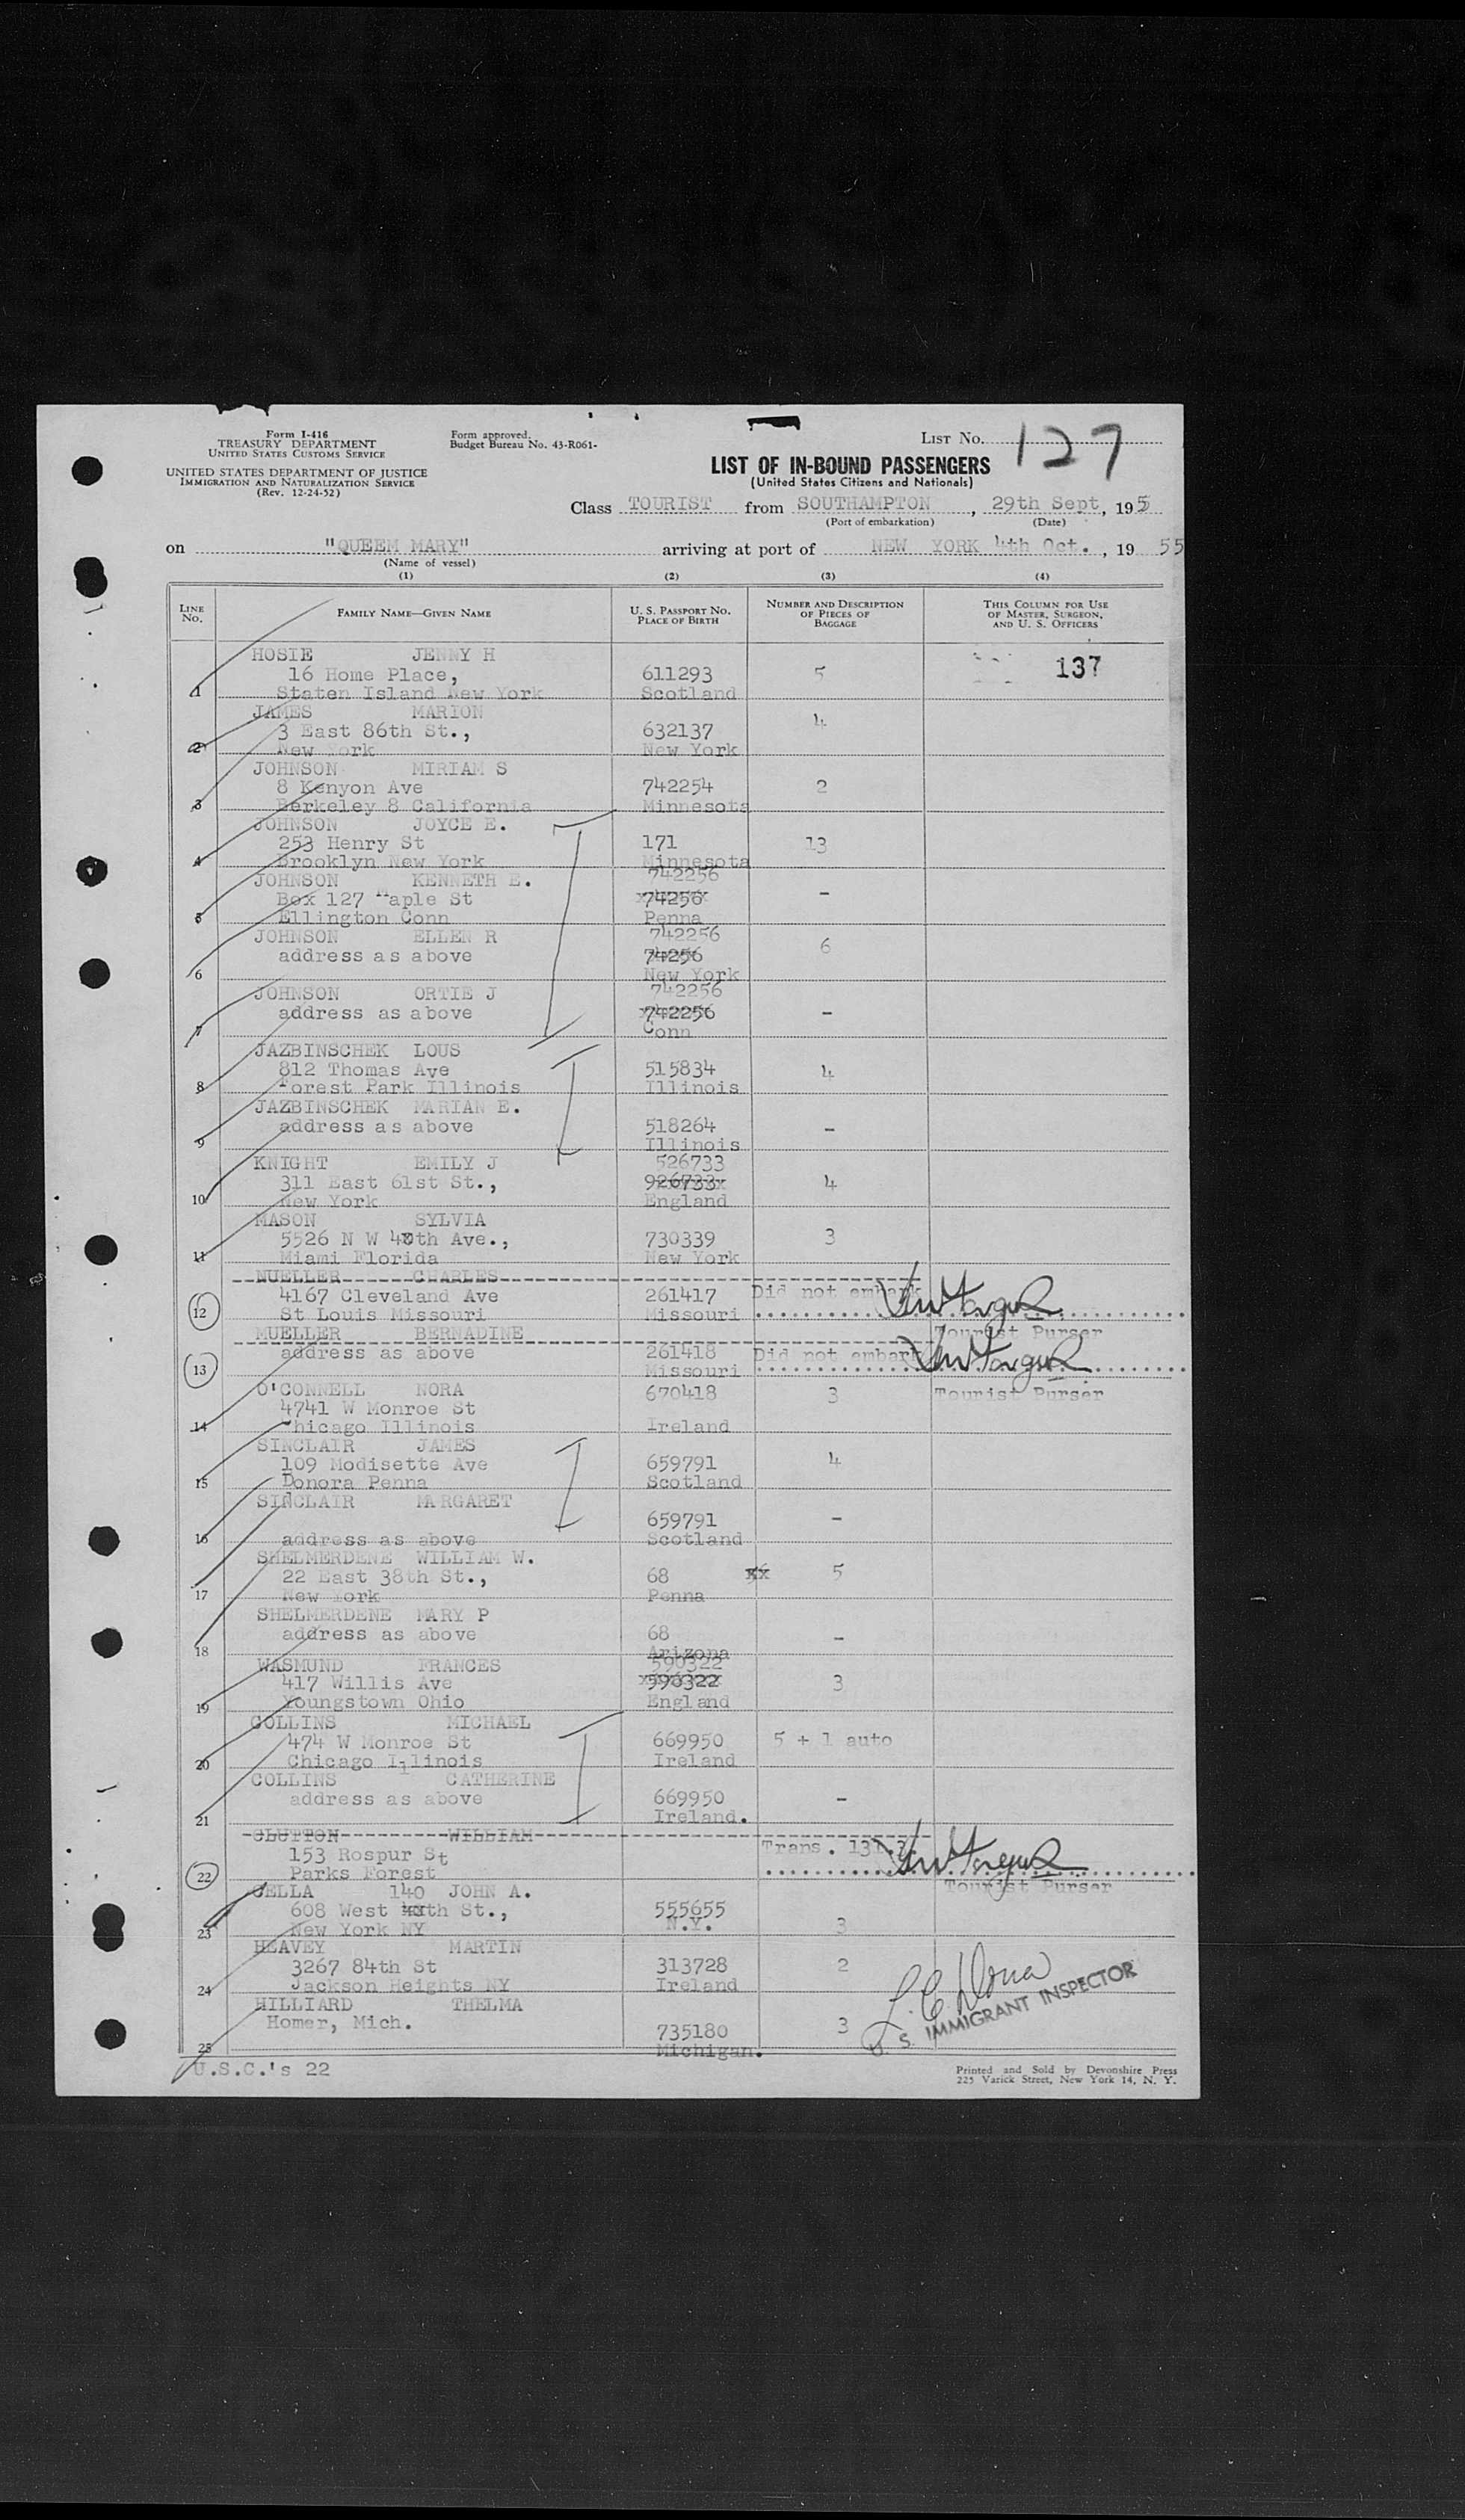 Form I-416
TREASURY DEPARTMENT
UNITED STATES CUSTOMS SERVICE
UNITED STATES DEPARTMENT OF JUSTICE
IMMIGRATION AND NATURALIZATION SERVICE
(Rev. 12-24-52)
Form approved.
Budget Bureau No. 43-R061-
LIST NO. 127
LIST OF IN-BOUND PASSENGERS
(United States Citizens and Nationals)
Class TOURIST from SOUTHAMPTON, 29th Sept, 195
(Port of embarkation) (Date)
on "QUEEM MARY" arriving at port of NEW YORK 4th Oct., 19 55
(Name of vessel)
(1) (2) (3) (4)
LINE NO. FAMILY NAME—GIVEN NAME U. S. PASSPORT NO. PLACE OF BIRTH NUMBER AND DESCRIPTION OF PIECES OF BAGGAGE THIS COLUMN FOR USE OF MASTER, SURGEON, AND U. S. OFFICERS
HOSIE JENNY H
16 Home Place, 611293 5 137
1 Staten Island New York Scotland
JAMES MARION 4
3 East 86th St., 632137
2 New York New York
JOHNSON MIRIAM S
8 Kenyon Ave 742254 2
3 Berkeley 8 California Minnesota
JOHNSON JOYCE E.
253 Henry St 171 13
4 Brooklyn New York Minnesota
JOHNSON KENNETH E. 742256
Box 127 Maple St 74256 -
5 Ellington Conn Penna
JOHNSON ELLEN R 742256
address as above 74256 6
6 New York
JOHNSON ORTIE J 742256
address as above 742256 -
7 Conn
JAZBINSCHEK LOUS
812 Thomas Ave 515834 4
8 Forest Park Illinois Illinois
JAZBINSCHEK MARIAN E.
address as above 518264 -
9 Illinois
KNIGHT EMILY J 526733
311 East 61st St., 926733x 4
10 New York England
MASON SYLVIA
5526 N W 4 th Ave., 730339 3
11 Miami Florida New York
MUELLER CHARLES
4167 Cleveland Ave 261417 Did not embark
12 St Louis Missouri Missouri
MUELLER BERNADINE Tourist Purser
address as above 261418 Did not embark
13 Missouri
O'CONNELL NORA 670418 3 Tourist Purser
4741 W Monroe St
14 Chicago Illinois Ireland
SINCLAIR JAMES
109 Modisette Ave 659791 4
15 Donora Penna Scotland
SINCLAIR MARGARET
659791 -
16 address as above Scotland
SHELMERDENE WILLIAM W.
22 East 38th St., 68 xx 5
17 New York Penna
SHELMERDENE MARY P
address as above 68 -
18 Arizona
WASMUND FRANCES 590322
417 Willis Ave 590322 3
19 Youngstown Ohio England
COLLINS MICHAEL
474 W Monroe St 669950 5 + 1 auto
20 Chicago Illinois Ireland
COLLINS CATHERINE
address as above 669950 -
21 Ireland.
CLUTTON WILLIAM
153 Rospur St Trans. 131.
22 Parks Forest
CELLA 140 JOHN A. Tourist Purser
608 West th St., 555655
23 New York NY N.Y. 3
HEAVEY MARTIN
3267 84th St 313728 2
24 Jackson Heights NY Ireland
HILLIARD THELMA
Homer, Mich. 735180 3
25 Michigan.
U. S. IMMIGRANT INSPECTOR
U.S.C.'s 22
Printed and Sold by Devonshire Press
225 Varick Street, New York 14, N. Y.